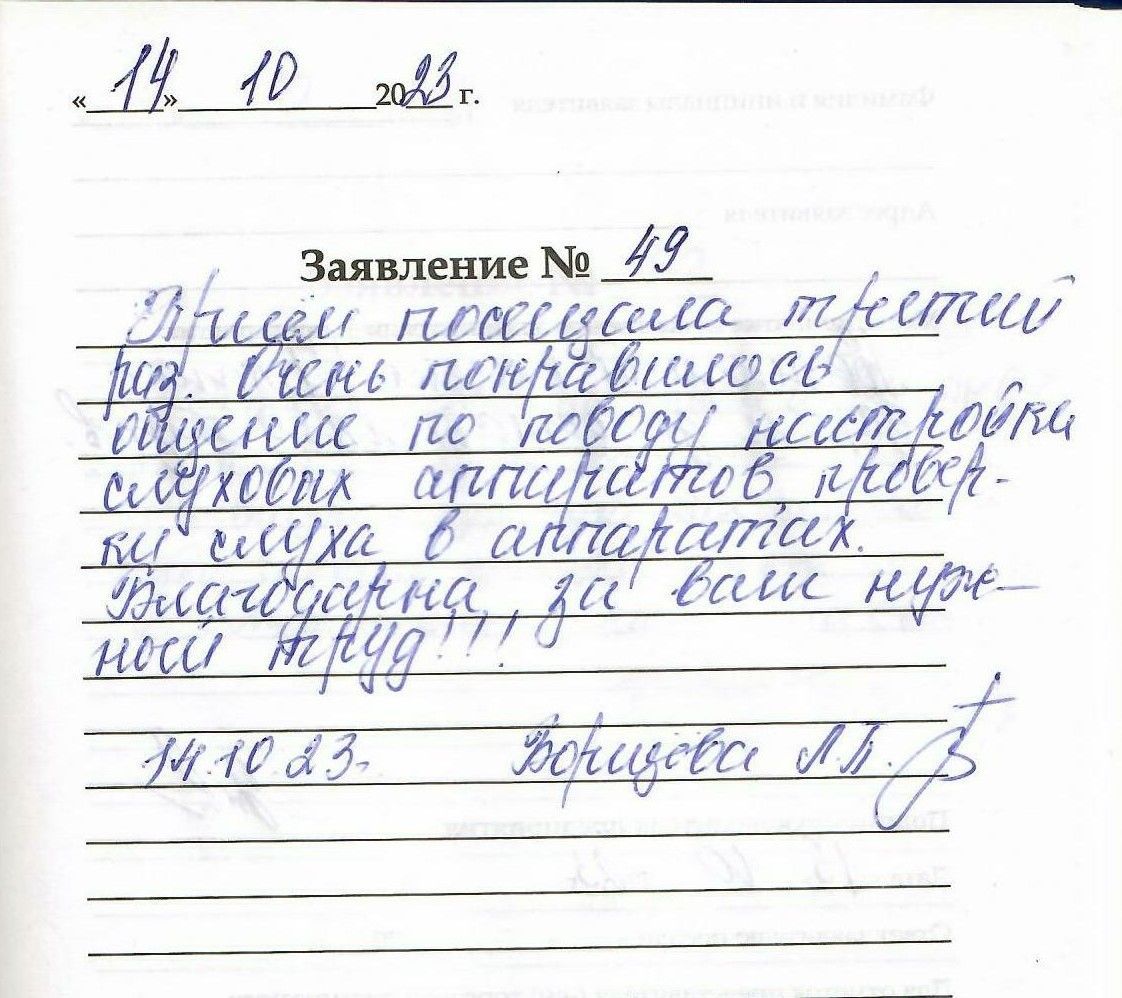 «14» 10 2023 г.
Заявление № 49
Приём посещала третий
раз. Очень понравилось
общение по поводу настройки
слуховых аппаратов, провер-
ки слуха в аппаратах.
Благодарна за ваш нуж-
ной труд!!!
14.10.23. Борщёва Л.П.